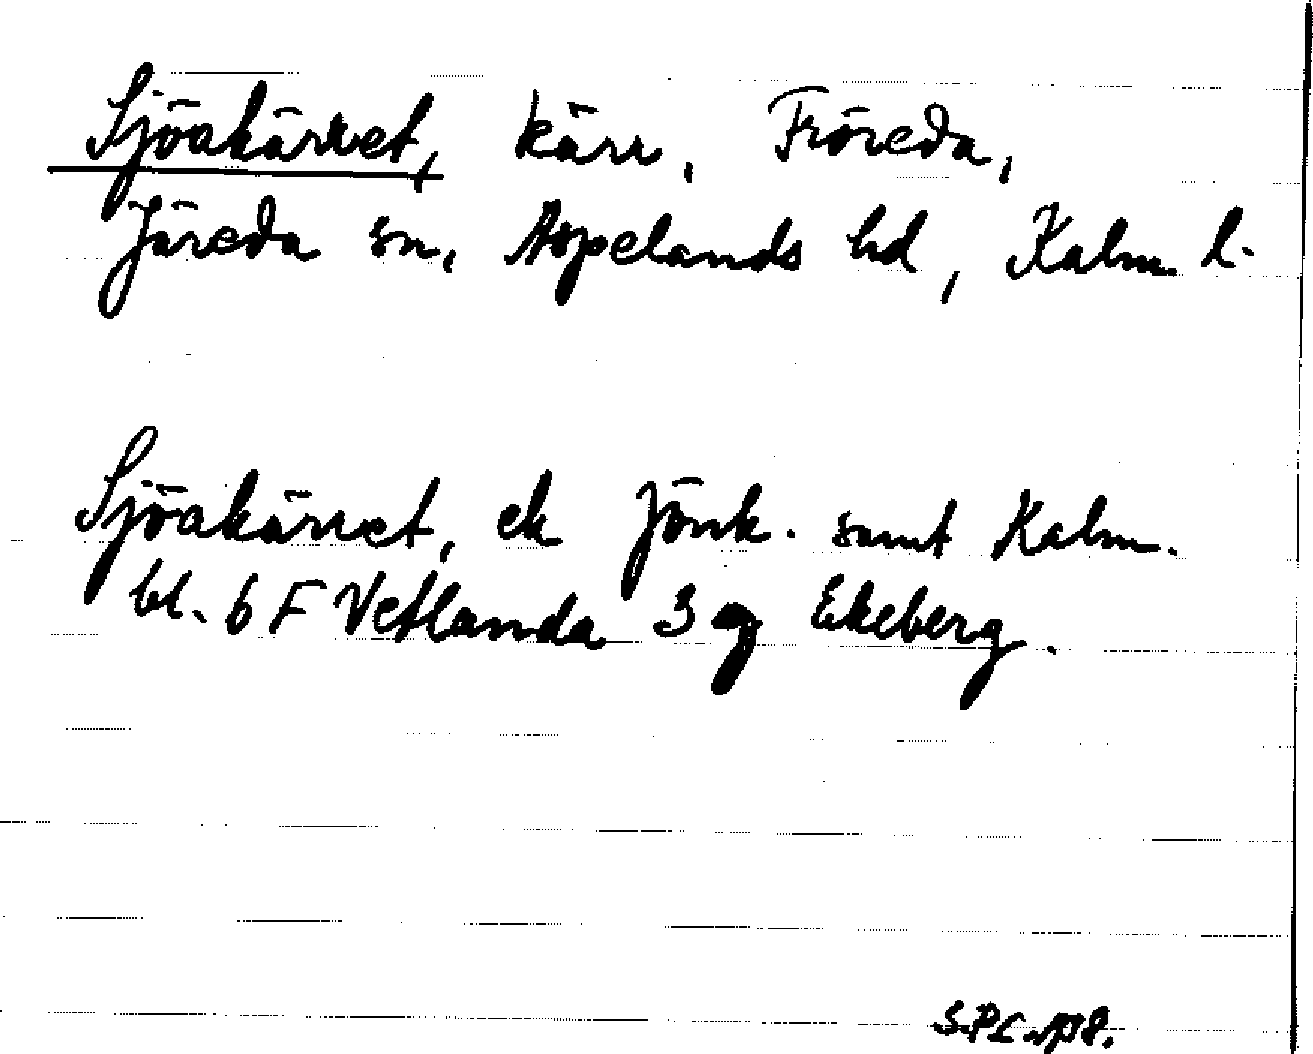 Sjöakärret, kärr, Fröreda,
Järeda sn, Aspelands hd, Kalm. l.
Sjöakärret, ek Jönk. samt Kalm.
bl. 6 F Vetlanda 3 g Ekeberg.